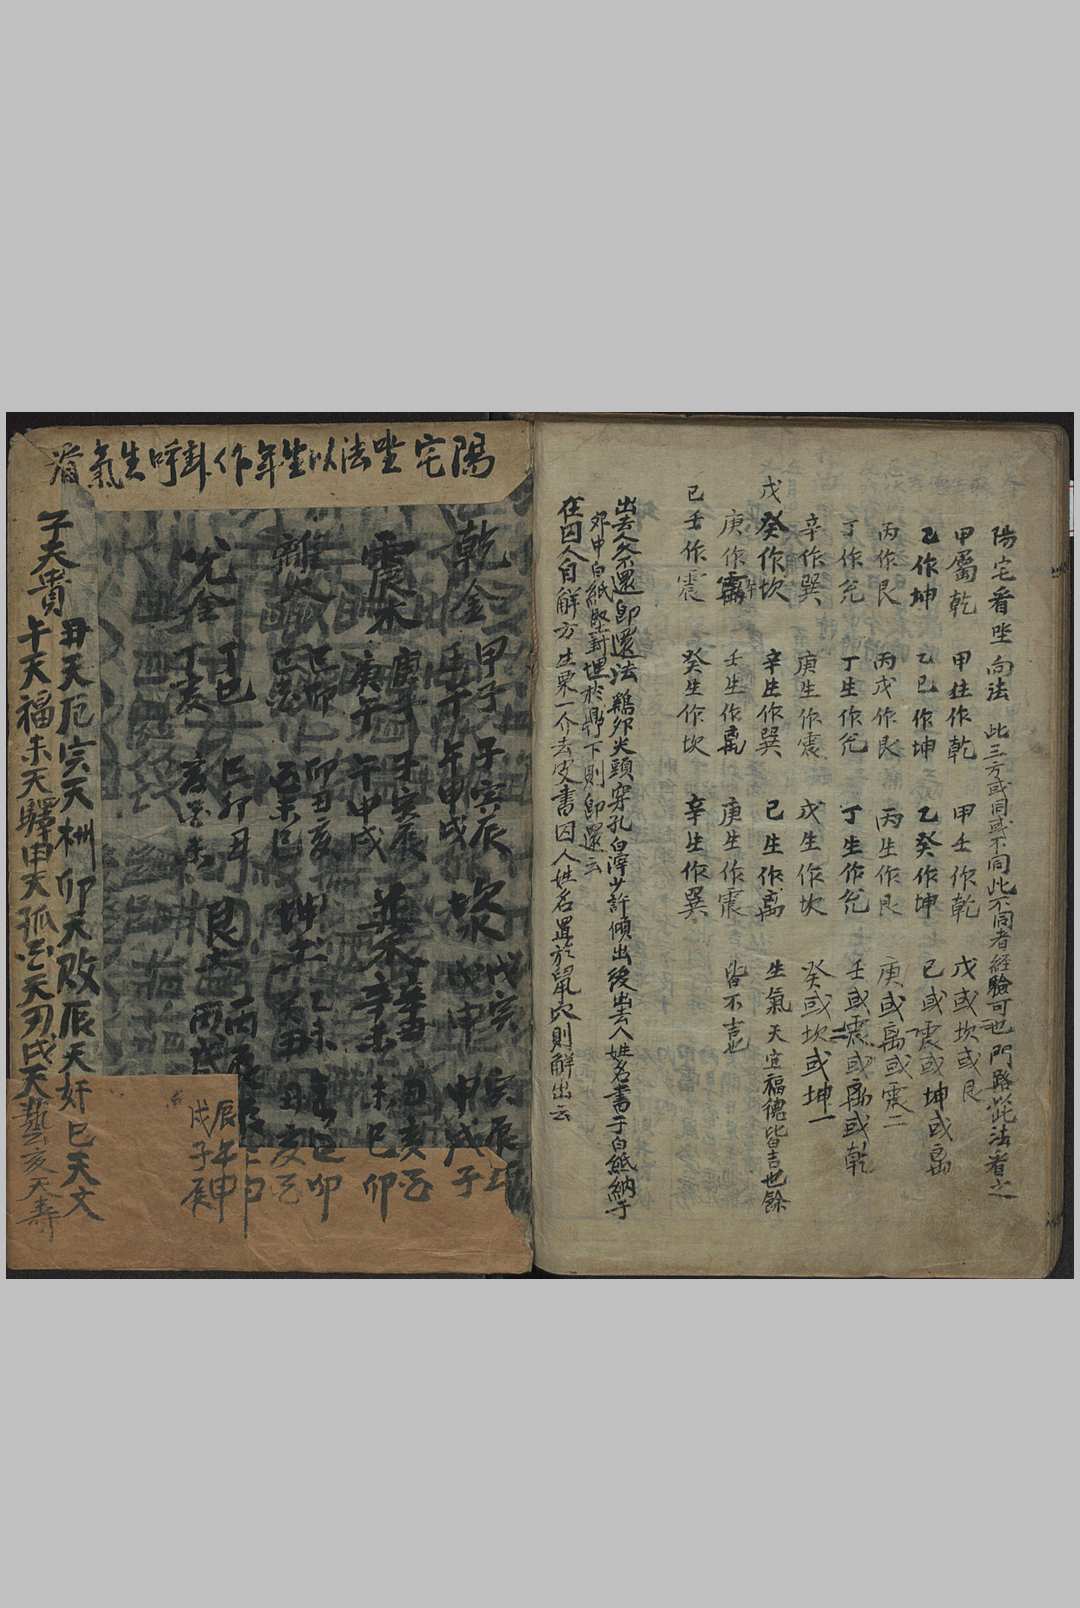 陽宅看坐向法 此三方或同或不同此不同者経驗可也 門路以此法看之
甲屬乾 甲生作乾 甲壬作乾 戊或坎或艮
乙作坤 乙巳作坤 乙癸作坤 巳或震或坤或离
丙作艮 丙戊作艮 丙生作艮 庚或离或震
丁作兌 丁生作兌 丁生作兌 壬或震或离或乾
辛作巽 庚生作震 戊生作坎 癸或坎或坤
戊癸作坎 辛生作巽 己生作离 生氣天宜福德皆吉也餘
庚作离 壬生作离 庚生作震 皆不吉也
己壬作震 癸生作坎 辛生作巽
出去人不還即還法 鷄卵尖頭穿孔白滓少許傾出後出去人姓名書于白紙納于
卵中白紙堅封埋於鼎下則即還云
在囚人自解方 生栗一介去皮書囚人姓名置於鼠穴則解出云
陽宅坐法以生年作卦呼生氣看
乾金 甲子 子寅辰 坎 戊寅 寅辰
壬午 午申戌 戊申 申戌子
震木 庚子 子寅辰 巽木 辛丑 丑亥酉
庚午 午申戌 辛未 未巳卯
離 己卯 卯丑亥 坤土 乙未 未巳卯
己酉 酉未巳
兌金 丁巳 巳卯丑 艮土 丙辰
丁亥 亥酉未 丙戌
辰午申
戌子辰
子天貴 丑天厄 寅天 卯天 辰天奸 巳天文
午天福 未天驛 申天孤 酉天刃 戌天藝 亥天壽